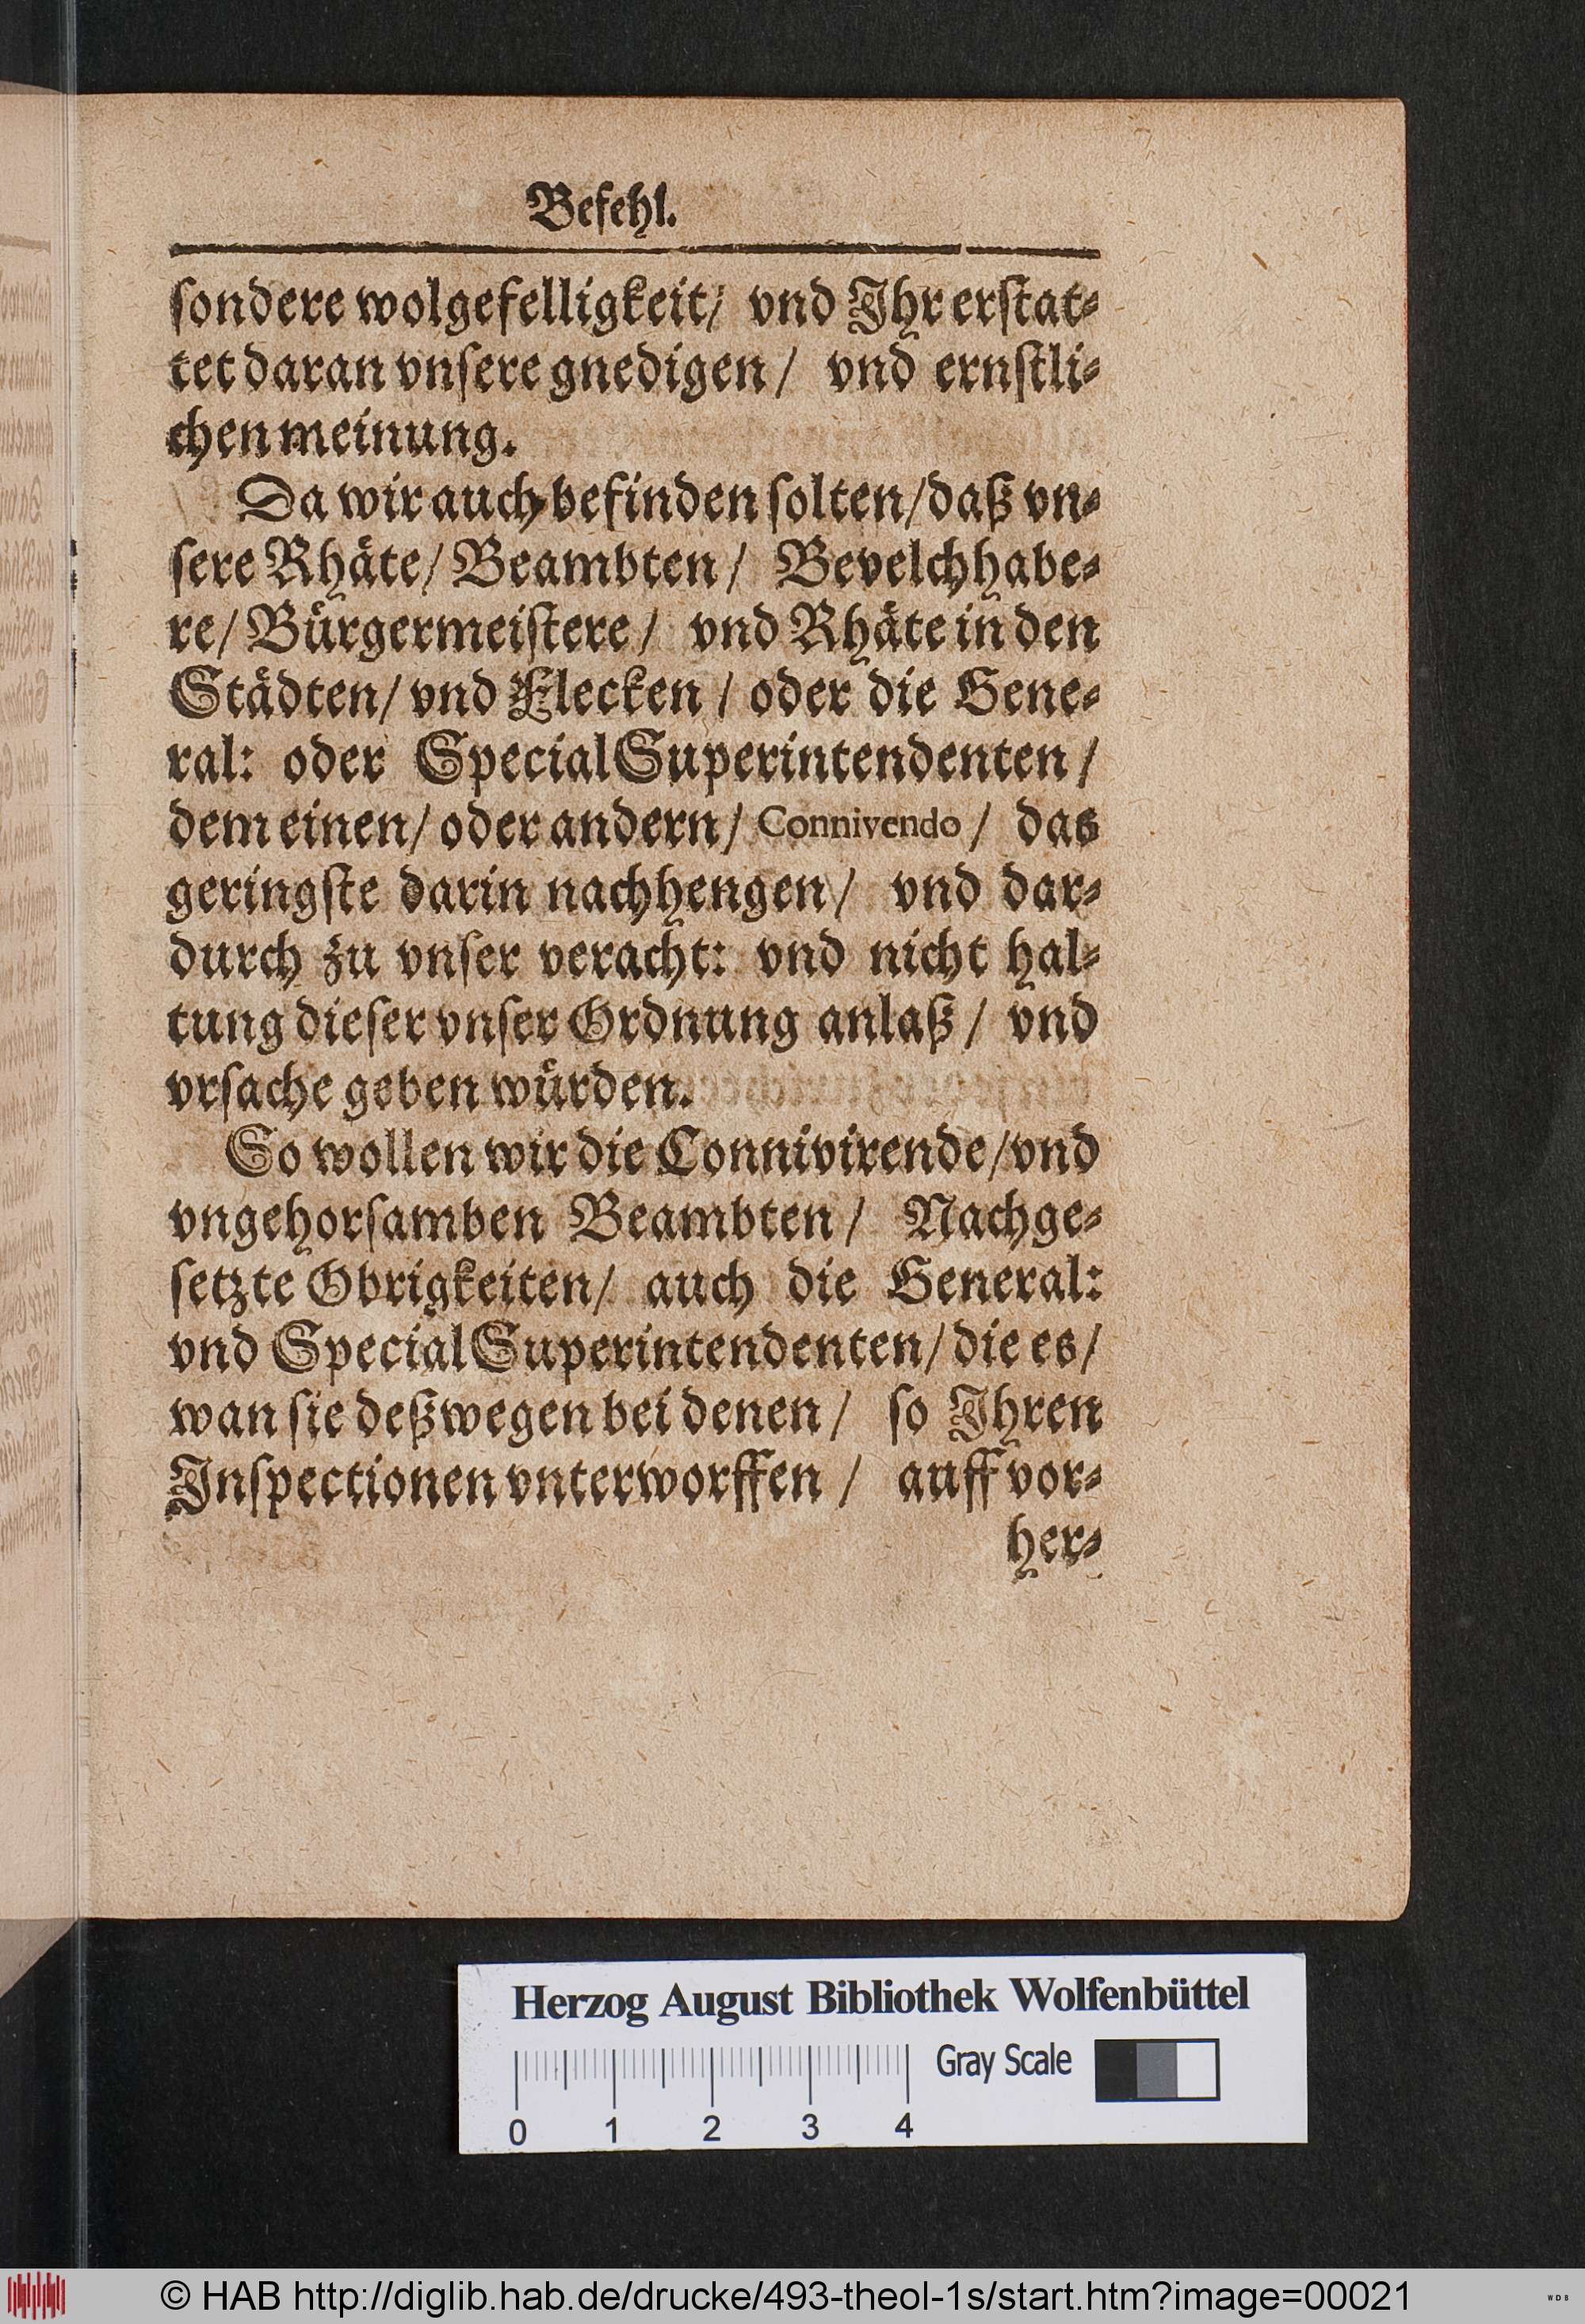 Befehl.
ſondere wolgefelligkeit/ vnd Ihr erſtat⸗
tet daran vnſere gnedigen / vnd ernſtli⸗
chen meinung.
Da wir auch befinden ſolten/daß vn⸗
ſere Rhäte/ Beambten / Bevelchhabe⸗
re/ Bürgermeiſtere / vnd Rhäte in den
Städten/ vnd Flecken / oder die Gene⸗
ral: oder Special Superintendenten /
dem einen/ oder andern/ Connivendo / das
geringſte darin nachhengen/ vnd dar⸗
durch zu vnſer veracht: vnd nicht hal⸗
tung dieſer vnſer Ordnung anlaß / vnd
vrſache geben würden.
So wollen wir die Connivirende/vnd
vngehorſamben Beambten / Nachge⸗
ſetzte Obrigkeiten/ auch die General:
vnd Special Superintendenten/ die es/
wan ſie deßwegen bei denen / ſo Ihren
Inſpectionen vnterworffen / auff vor⸗
her⸗
Herzog August Bibliothek Wolfenbüttel
Gray Scale
0 1 2 3 4
© HAB http://diglib.hab.de/drucke/493-theol-1s/start.htm?image=00021
WDB